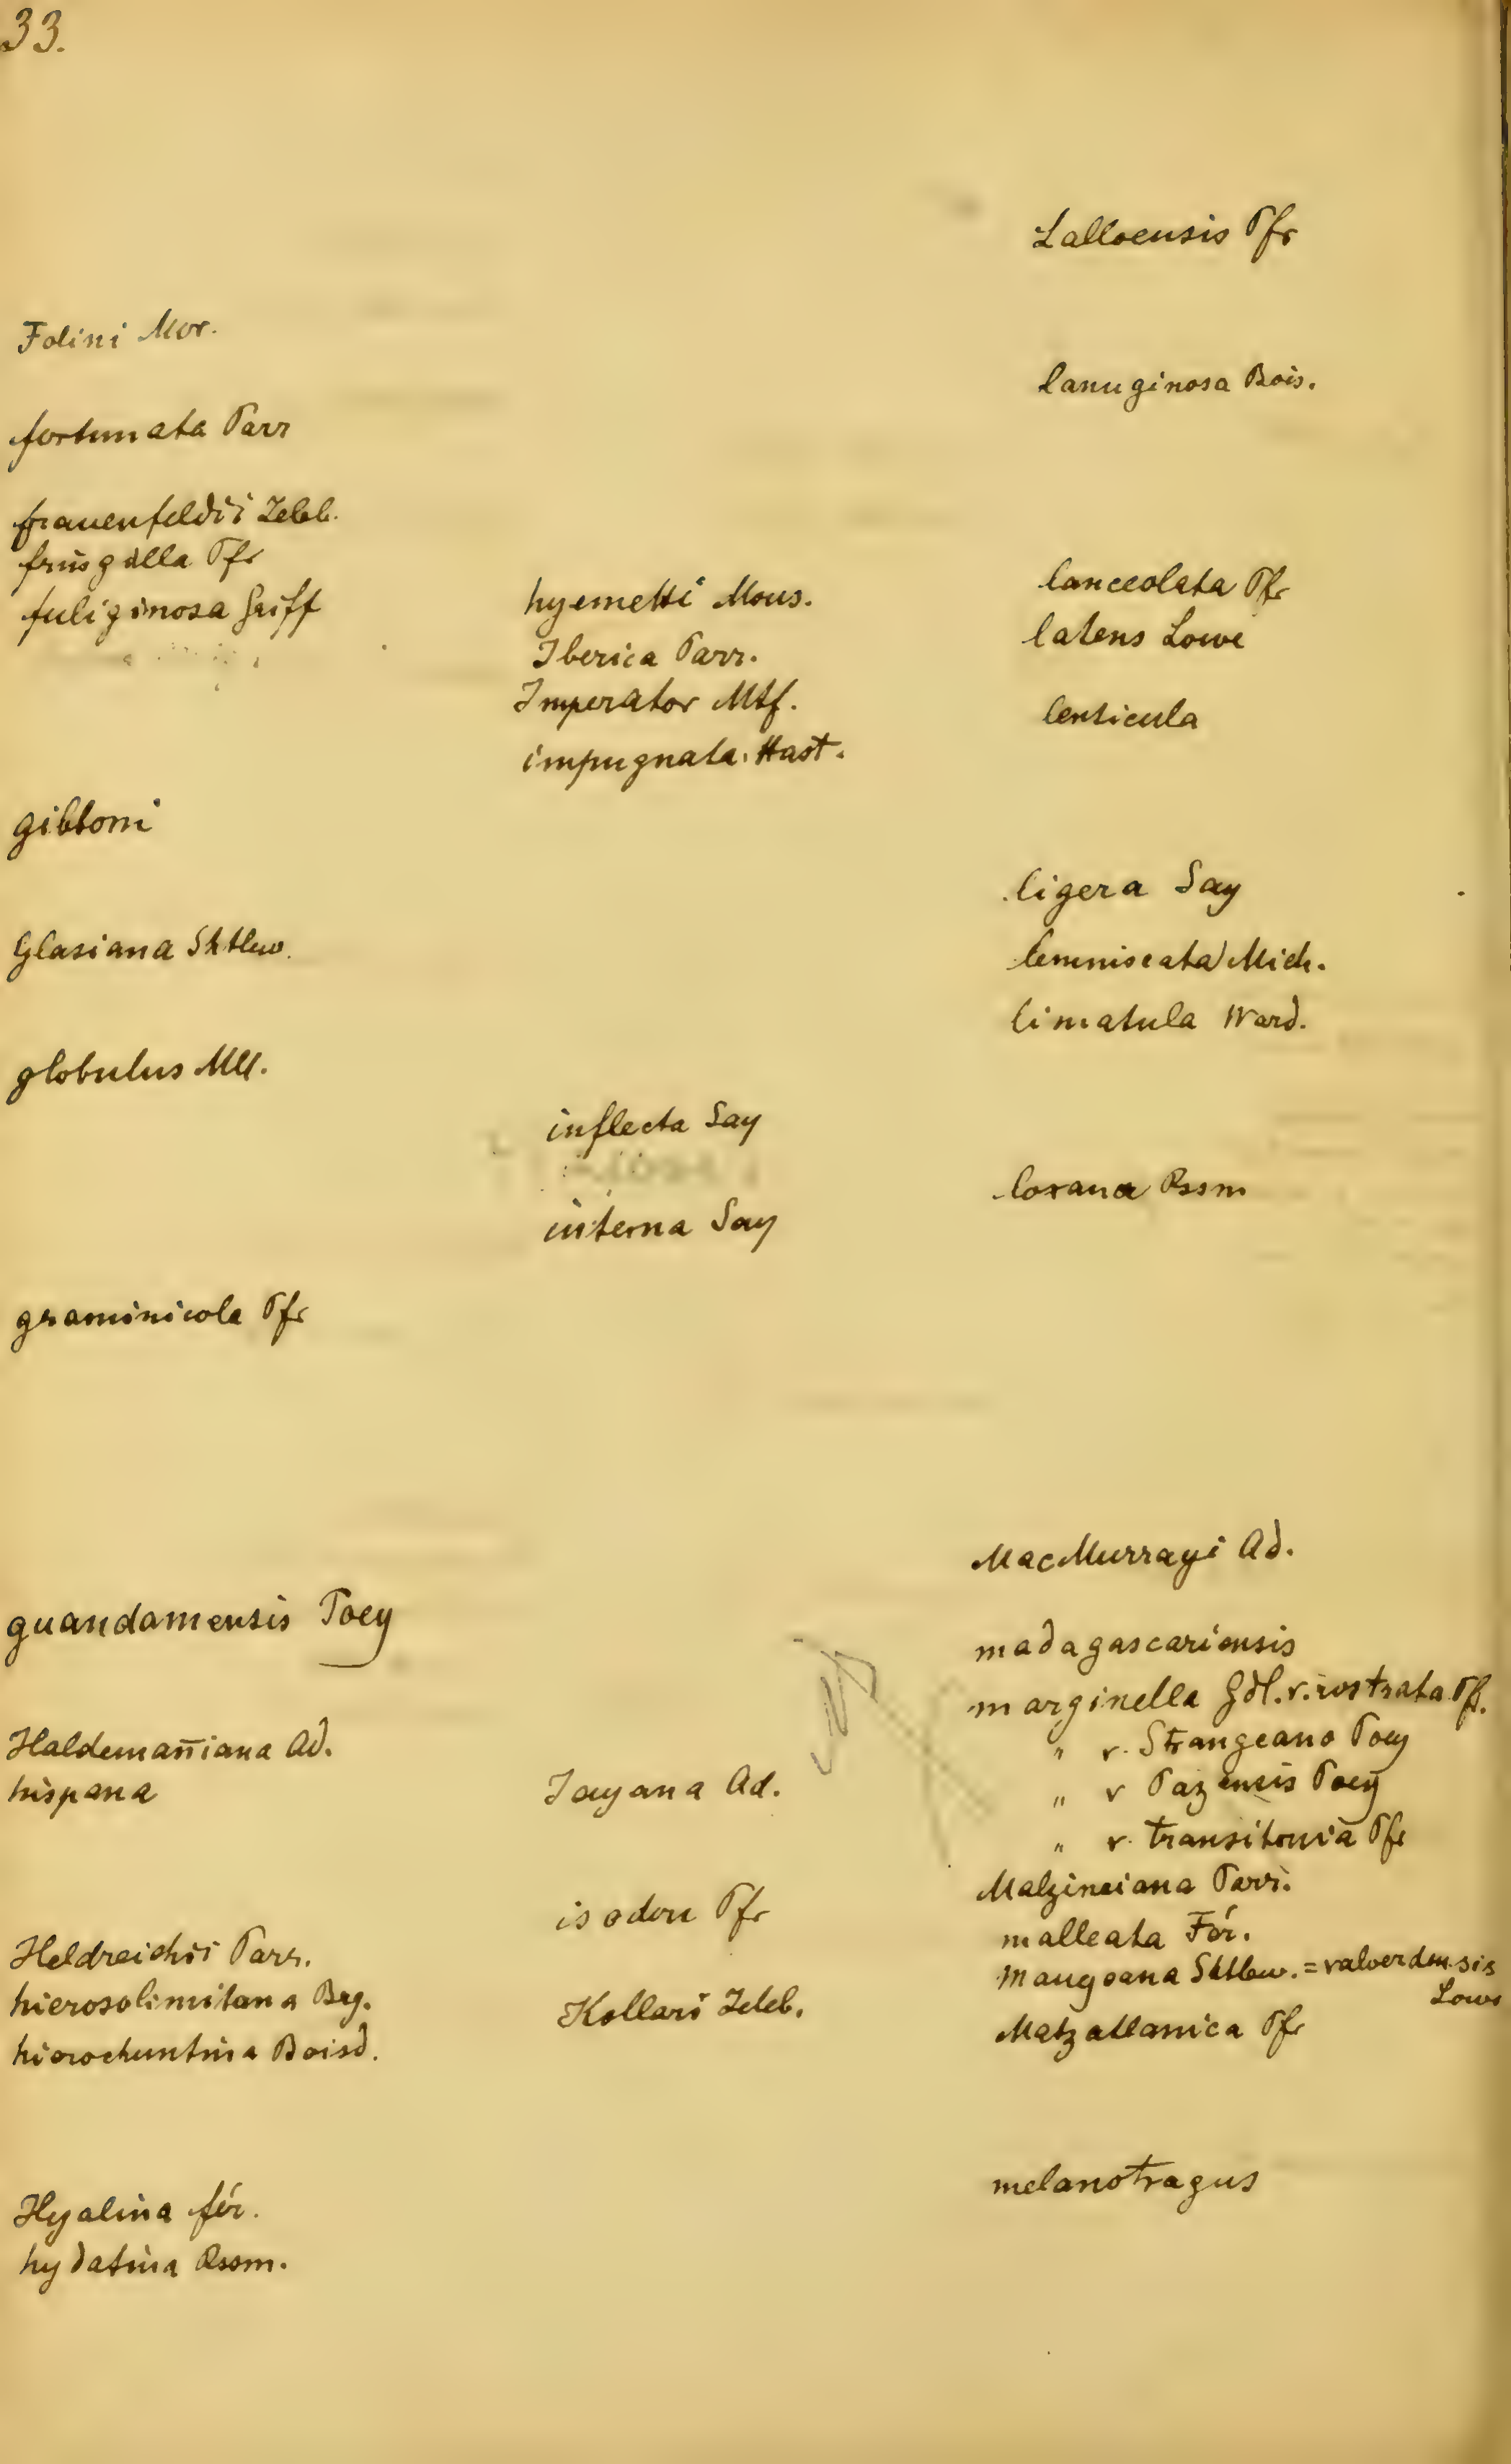 33.
Folini Mor.
fortunata Parr
frauenfeldii Zeleb.
frugalla Pfr
fuliginosa Griff
gibboni
Glasiana Shtlew.
globulus Mll.
graminicola Pfr
guandamensis Poey
Haldemaniana Ad.
hispana
Heldreichii Parr.
hierosolimitana Brg.
hierochuntina Boisd.
Hyalina fér.
hydatina Rssm.
hyemetti Mous.
Iberica Parr.
Imperator Mtf.
impugnata Hast.
inflecta Say
interna Say
Jayana Ad.
isodon Pfr
Kollari Zeleb.
Lalloensis Pfr
lanuginosa Bois.
lanceolata Pfr
latens Lowe
lenticula
ligera Say
lemniscata Mich.
limatula Ward.
loxana Rssm
MacMurrayi Ad.
madagascariensis
marginella Gdl. v. rostrata Pf.
" v. Strangeano Poey
" v Pazensis Poey
" v. transitoria Pfr
Malzineiana Parr.
malleata Fér.
Maugeana Shtlew. = valverdensis
Lowe
Matzatlanica Pfr
melanotragus